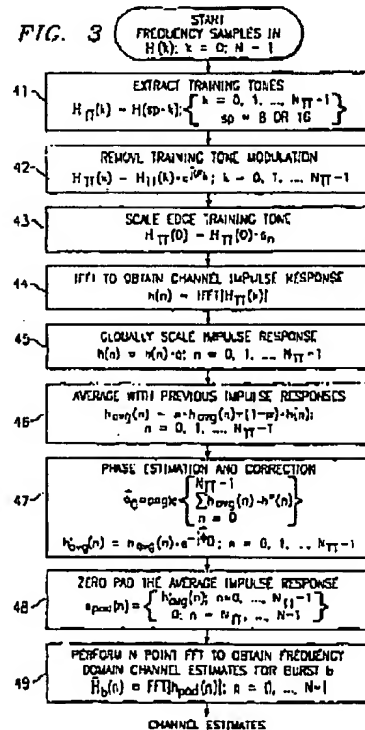 FIG. 3
START
FREQUENCY SAMPLES IN
H(k); k = 0; N - 1
41
EXTRACT TRAINING TONES
H_TT(k) - H(sp·k); { k = 0, 1, ..., N_TT-1
sp = 8 OR 16 }
42
REMOVE TRAINING TONE MODULATION
k = 0, 1, ..., N_TT-1
43
SCALE EDGE TRAINING TONE
H_TT(0) - H_TT(0)·
44
IFFT TO OBTAIN CHANNEL IMPULSE RESPONSE
h(n) - IFFT[H_TT(k)]
45
GLOBALLY SCALE IMPULSE RESPONSE
h(n) = h(n)·a; n = 0, 1, ..., N_TT-1
46
AVERAGE WITH PREVIOUS IMPULSE RESPONSES
n = 0, 1, ..., N_TT-1
47
PHASE ESTIMATION AND CORRECTION
N_TT-1
n = 0
n = 0, 1, ..., N_TT-1
48
ZERO PAD THE AVERAGE IMPULSE RESPONSE
49
PERFORM N POINT FFT TO OBTAIN FREQUENCY
DOMAIN CHANNEL ESTIMATES FOR BURST b
H_b(n) = FFT[h_pad(n)]; n = 0, ..., N-1
CHANNEL ESTIMATES